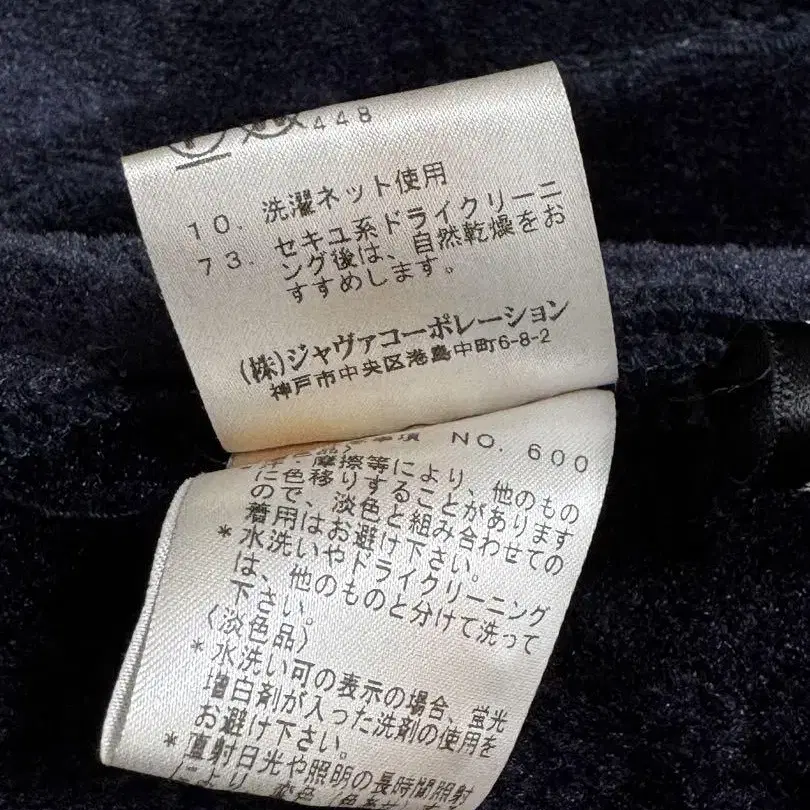 448
10. 洗濯ネット使用
73. セキユ系ドライクリーニ
ング後は、自然乾燥をお
すすめします。
(株)ジャヴァコーポレーション
神戸市中央区港島中町6-8-2
項 NO. 600
摩擦等により、他のもの
に色移りすることがあります
ので、淡色と組み合わせての
着用はお避け下さい。
*水洗いやドライクリーニング
は、他のものと分けて洗って
下さい。
(淡色品)
*水洗い可の表示の場合、蛍光
増白剤が入った洗剤の使用を
お避け下さい。
*直射日光や照明の長時間照射
により